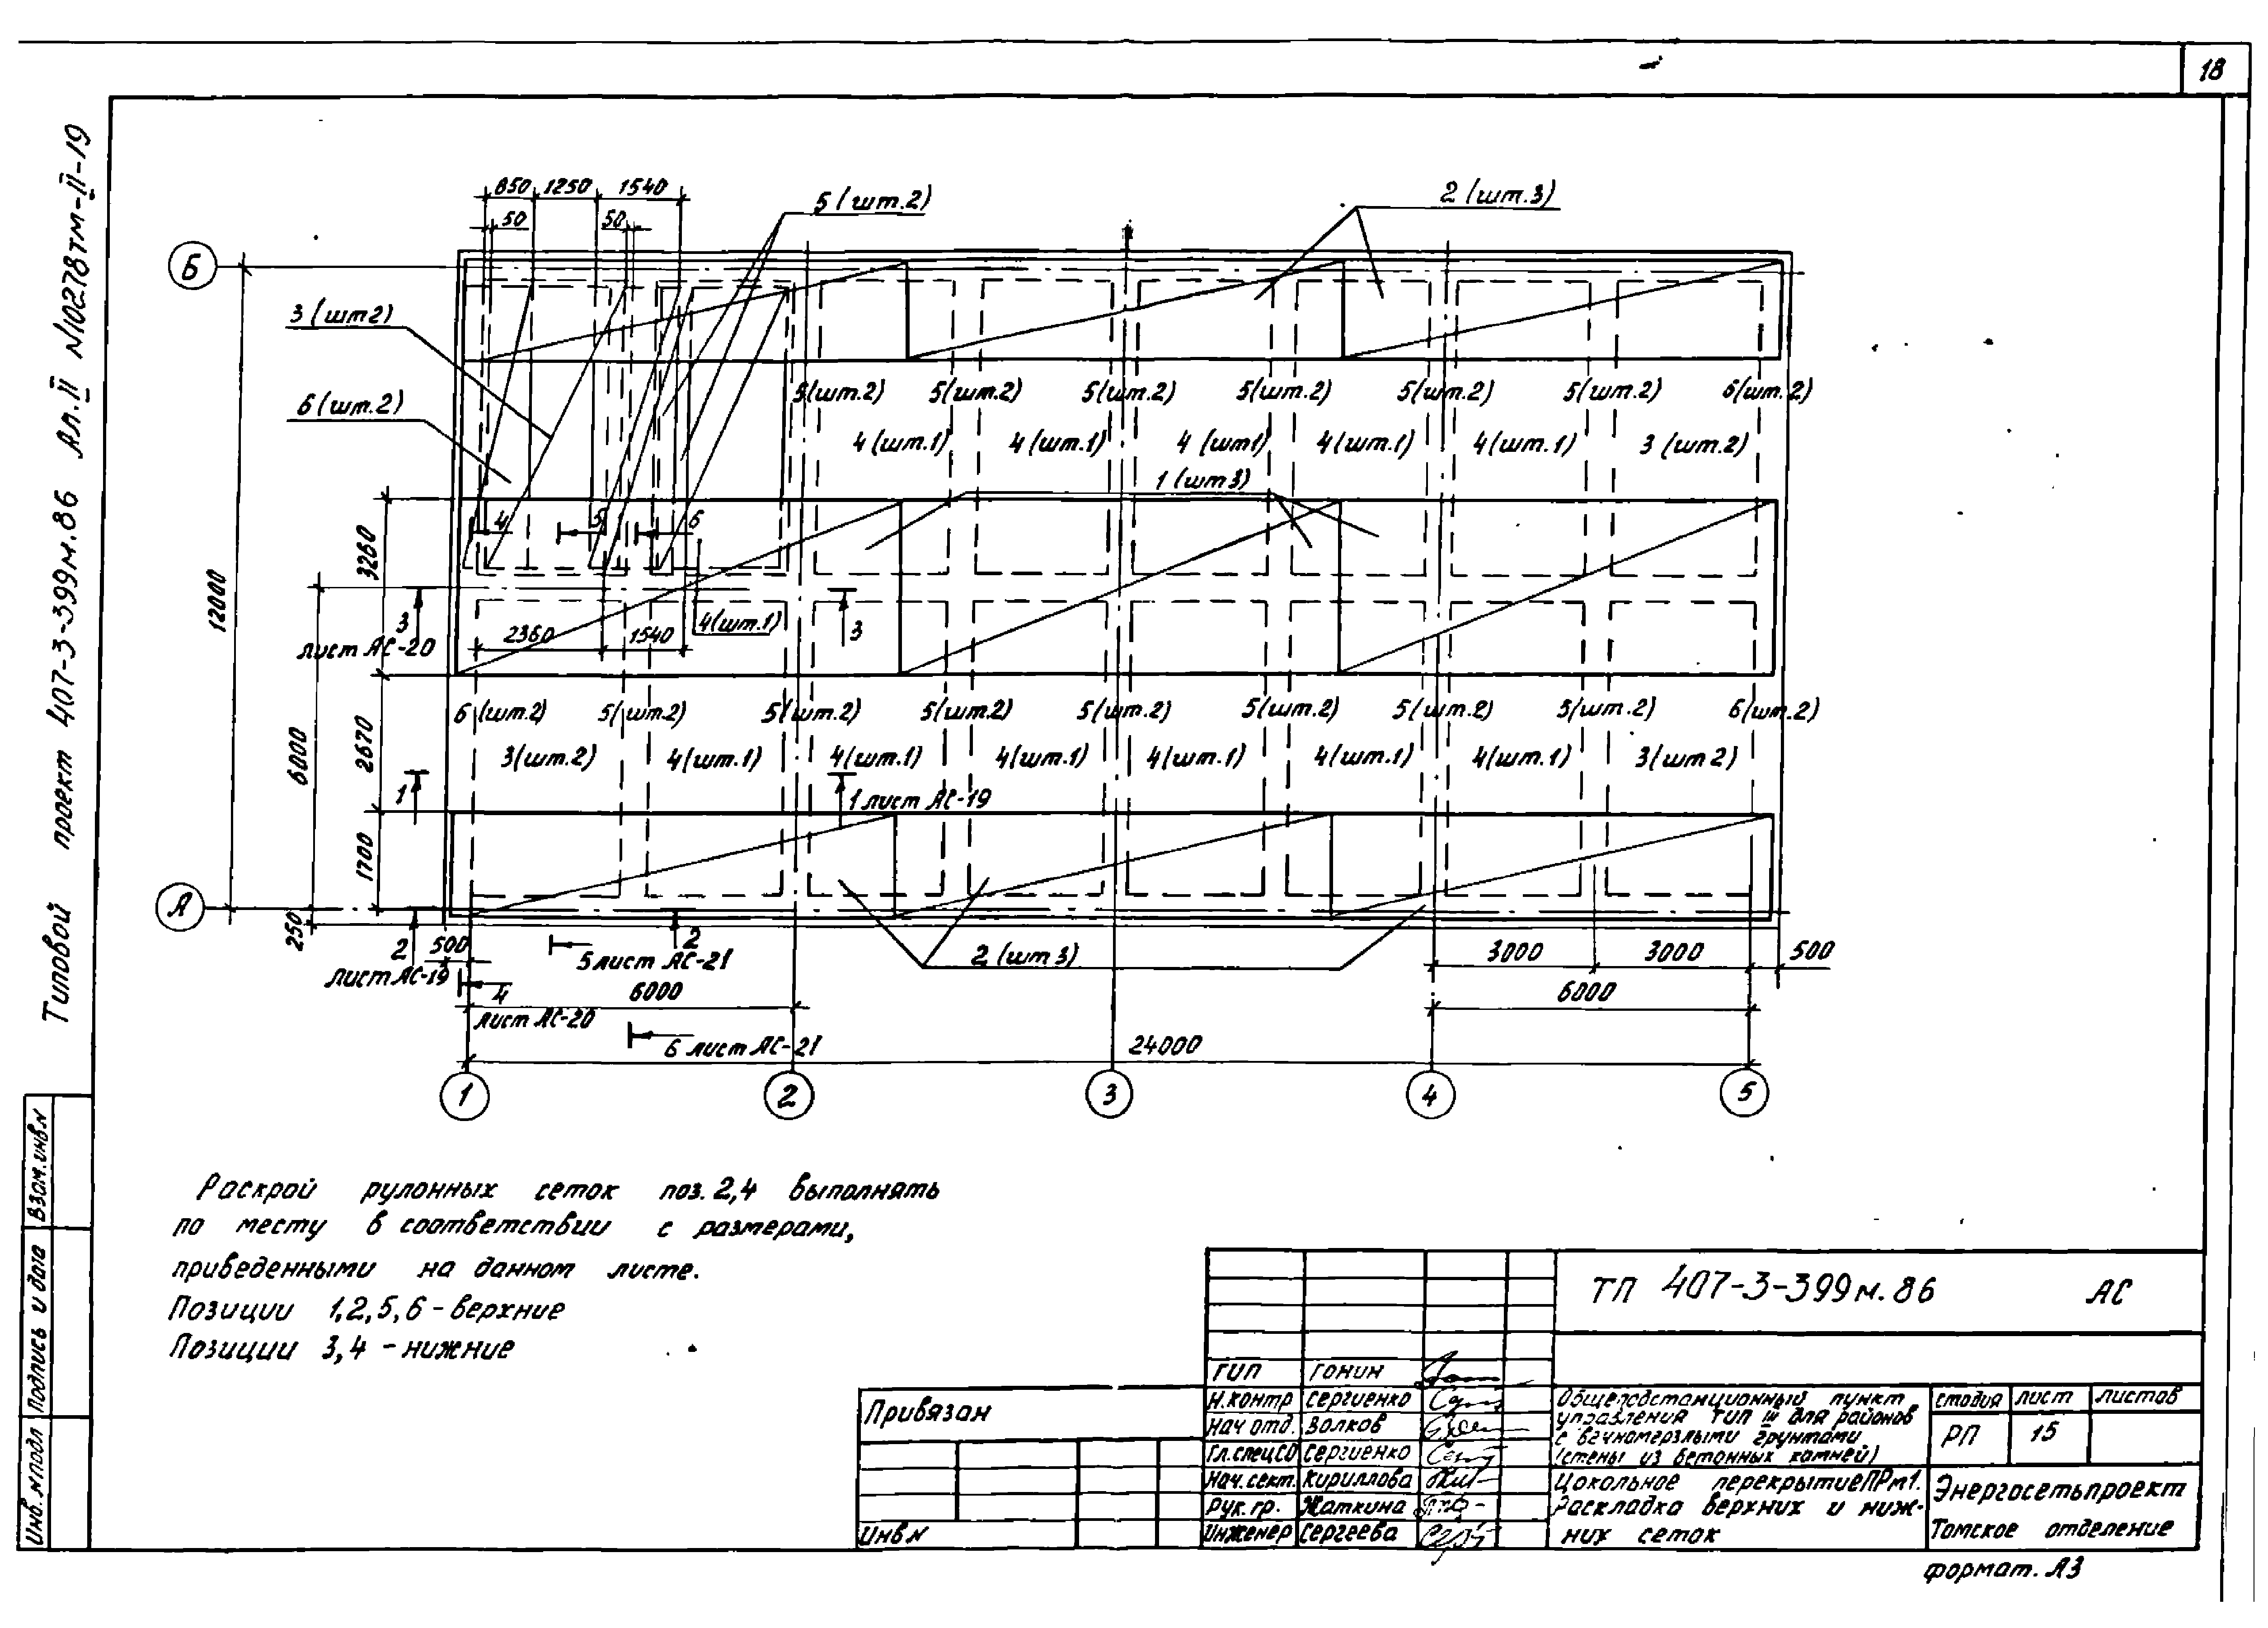 18
Типовой проект 407-3-399м.86 Ал.II N10278тм-II-19
850 1250 1540
50 50
5 (шт.2)
2 (шт.3)
Б
3 (шт2)
6 (шт.2)
5(шт.2) 5(шт.2) 5(шт.2) 5(шт.2) 5(шт.2) 5(шт.2) 6(шт.2)
4(шт.1) 4(шт.1) 4(шт1) 4(шт.1) 4(шт.1) 3(шт.2)
1 (шт3)
4 5 6
12000
3260
3
лист АС-20
2360 1540
4(шт.1)
3
6000
2670
6(шт.2) 5(шт.2) 5(шт.2) 5(шт.2) 5(шт.2) 5(шт.2) 5(шт.2) 5(шт.2) 6(шт.2)
3(шт.2) 4(шт.1) 4(шт.1) 4(шт.1) 4(шт.1) 4(шт.1) 4(шт.1) 3(шт2)
1
1 лист АС-19
1700
А
250
2
лист АС-19
500
5 лист АС-21
2
2 (шт3)
3000 3000 500
4
лист АС-20
6000
6000
6 лист АС-21
24000
1 2 3 4 5
Раскрой рулонных сеток поз. 2,4 выполнять
по месту в соответствии с размерами,
приведенными на данном листе.
Позиции 1,2,5,6 - верхние
Позиции 3,4 - нижние
Взам.инв.N
Подпись и дата
Инв. N подл
Привязан
Инв N
ТП 407-3-399м.86 АС
ГИП Гонин
Н.контр Сергиенко
Нач отд. Волков
Гл.спецСО Сергиенко
Нач.сект. Кириллова
Рук.гр. Жаткина
Инженер Сергеева
Общеподстанционный пункт
управления тип III для районов
с вечномерзлыми грунтами
(стены из бетонных камней)
стадия лист листов
РП 15
Цокольное перекрытиеПРм1.
Раскладка верхних и ниж-
них сеток
Энергосетьпроект
Томское отделение
формат. А3